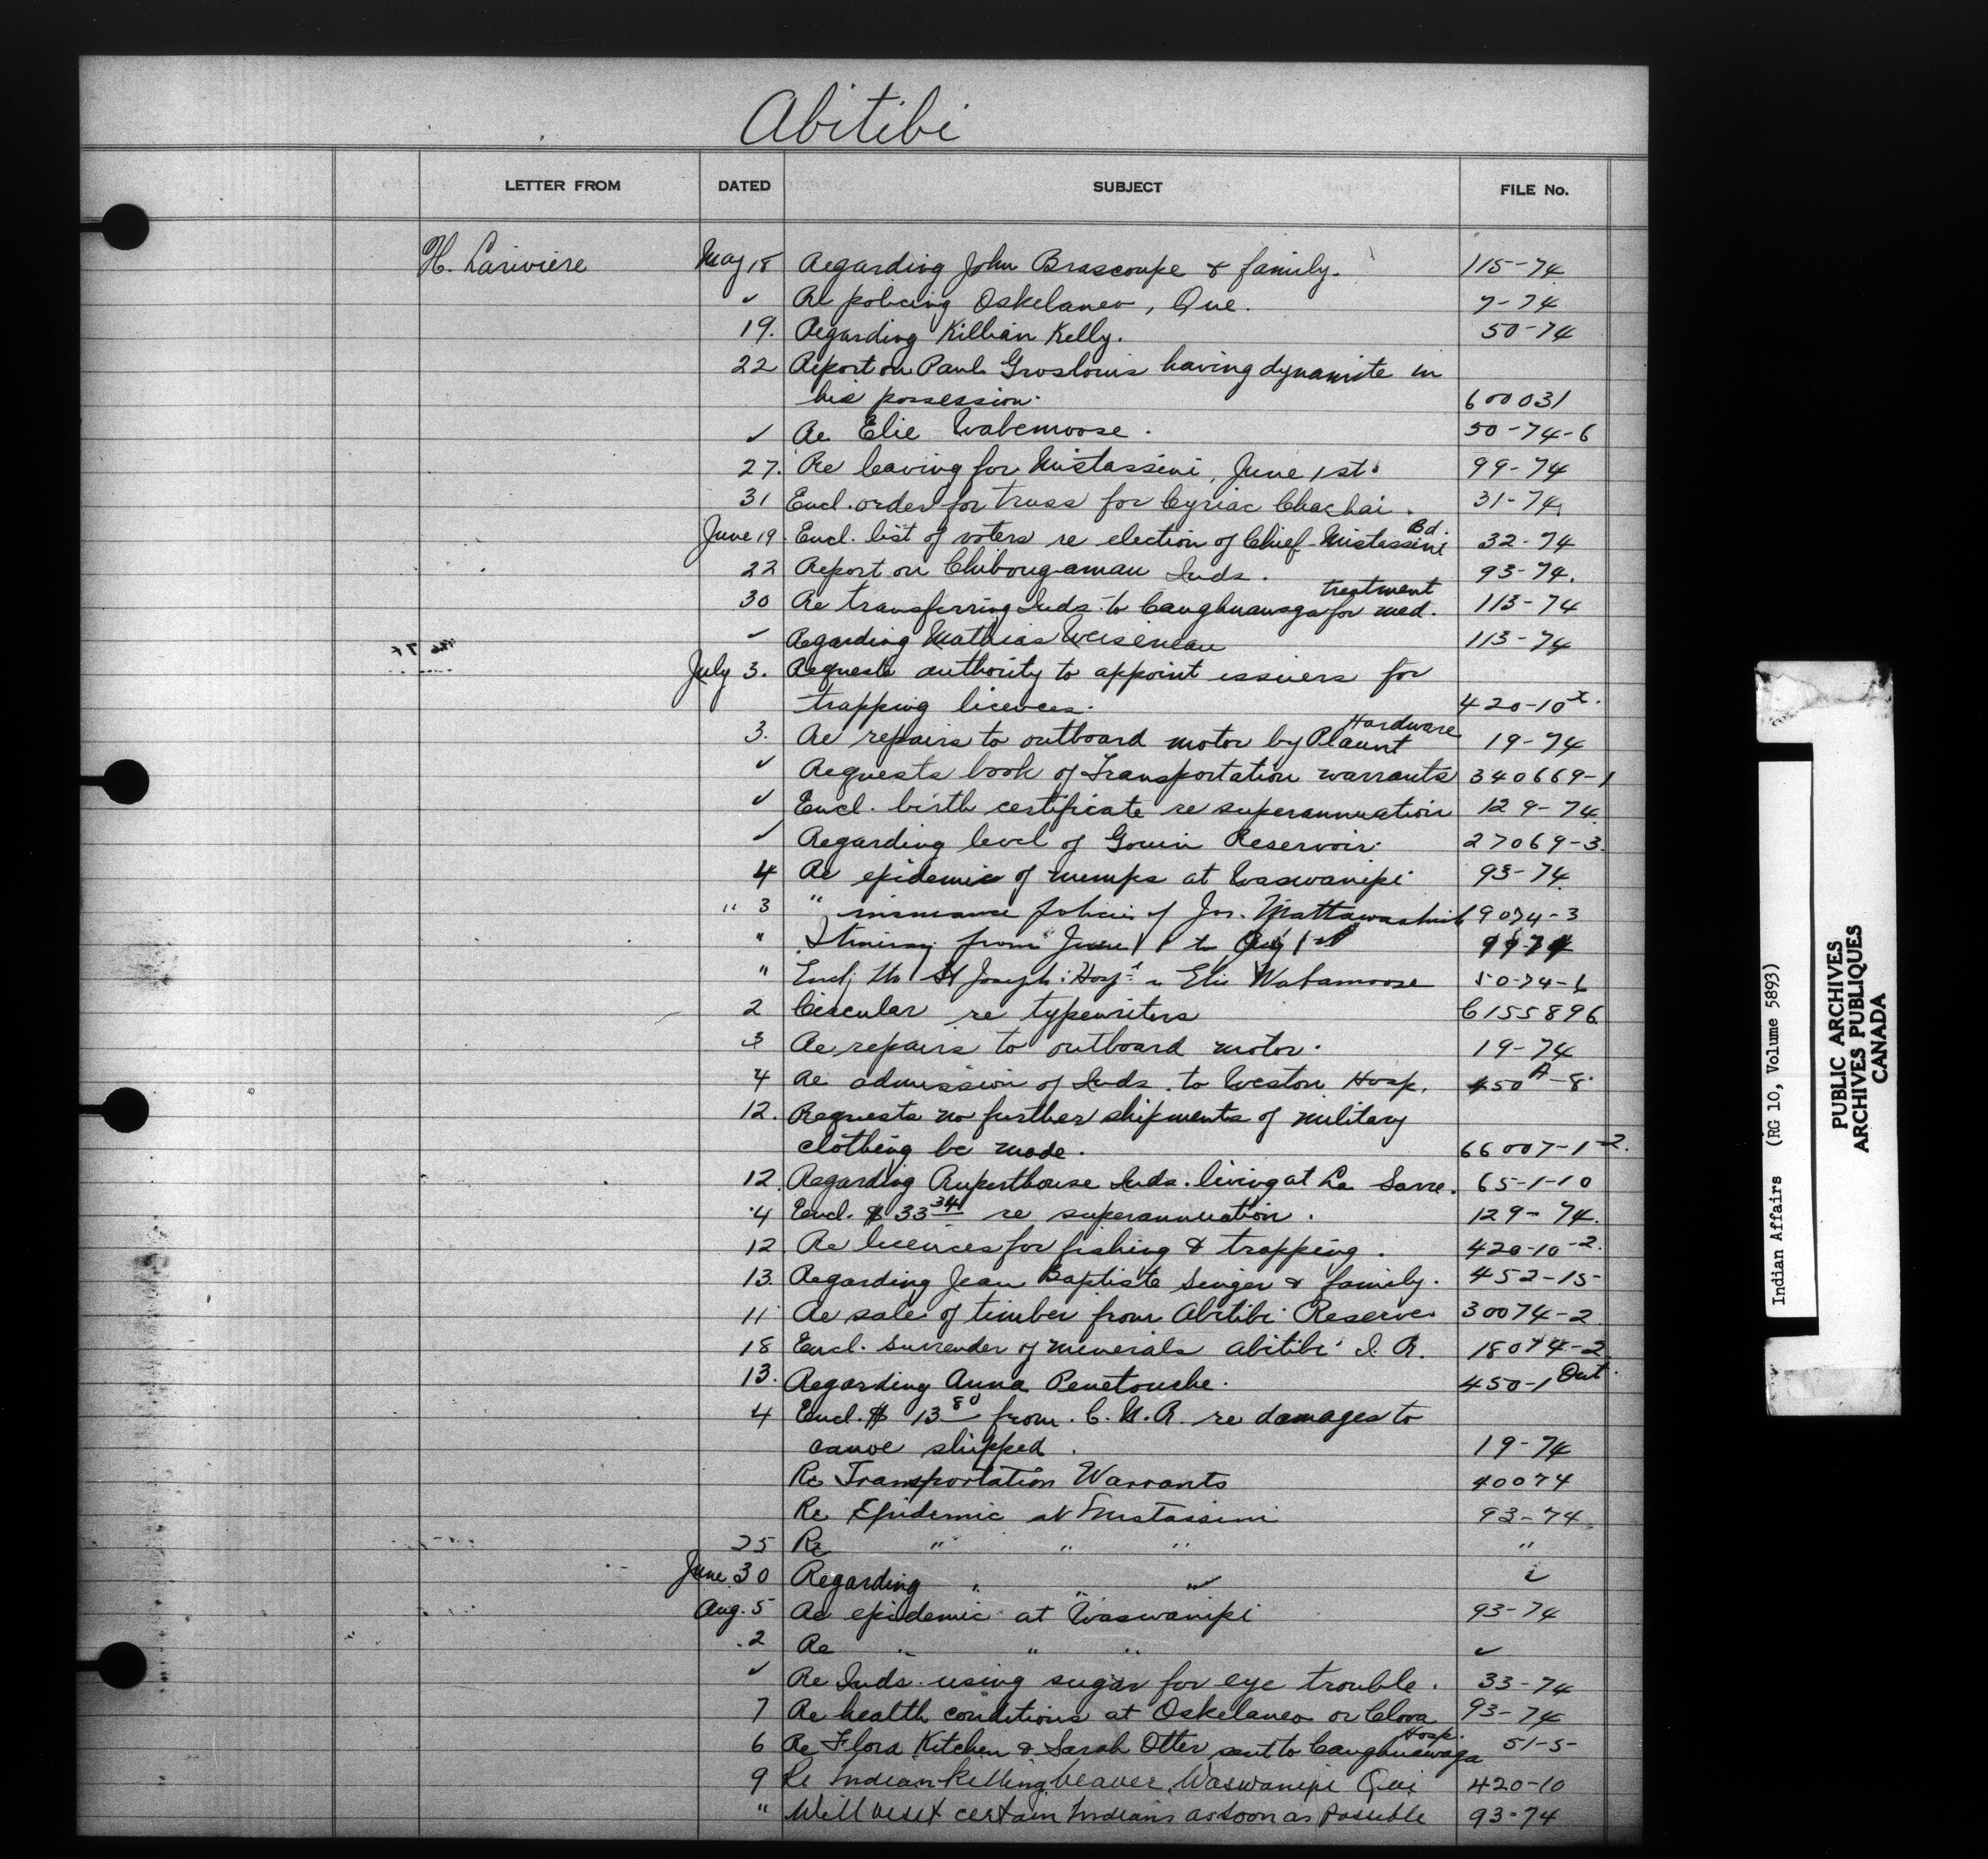 Abitibi
LETTER FROM DATED SUBJECT FILE No.
H. Lariviere May 18 Regarding John Brascoupe & family. 115-74
✓ Re policing Oskelaneo, Que. 7-74
19. Regarding Killian Kelly. 50-74
22 Report on Paul Groslouis having dynamite in
his possession. 600031
✓ Re Elie Wabemoose. 50-74-6
27. Re leaving for Mistassini, June 1st. 99-74
31 Encl. order for truss for Cyriac Chachai. 31-74
June 19. Encl. list of voters re election of Chief - Mistassini Bd. 32-74
22 Report on Chibougamau Inds. 93-74.
30 Re transferring Inds. to Caughnawaga for med. treatment 113-74
✓ Regarding Mathias 113-74
July 3. Requests authority to appoint issuers for
trapping licences. 420-10x.
3. Re repairs to outboard motor by Plaunt Hardware 19-74
✓ Requests book of Transportation warrants 340669-1
✓ Encl. birth certificate re superannuation 129-74
✓ Regarding level of Gouin Reservoir. 27069-3.
4 Re epidemic of mumps at Waswanipi 93-74
" 3 " insurance policies of Jos. 19074-3
" Itinerary from June 1 to Aug 1st 99-74
" Encl. St Joseph's Hosp. re Elie Wabamoose 50-74-6
2 Circular re typewriters C155896
3 Re repairs to outboard motor. 19-74
4 Re admission of Inds. to Weston Hosp. 450A-8
12. Requests no further shipments of military
clothing be made. 66007-1-2.
12. Regarding Ruperthouse Inds. living at La Sarre. 65-1-10
4 Encl. $33.34 re superannuation. 129-74.
12 Re licences for fishing & trapping. 420-10-2.
13. Regarding Jean Baptiste Senger & family. 452-15-
11 Re sale of timber from Abitibi Reserve 30074-2
18 Encl. surrender of minerals Abitibi I. R. 18074-2
13. Regarding Anna Penetouche. 450-1 Out.
4 Encl. $13.80 from C. N. R. re damages to
canoe shipped. 19-74
Re Transportation Warrants 40074
Re Epidemic at Mistassini 93-74
25 Re " " " "
June 30 Regarding " " " "
Aug. 5 Re epidemic at Waswanipi 93-74
2 Re " " " ✓
✓ Re Inds. using sugar for eye trouble. 33-74
7 Re health conditions at Oskelaneo or Clova 93-74
6 Re Flora Kitchen & Sarah Otter sent to Caughnawaga Hosp. 51-5-
9 Re Indian killing beaver, Waswanipi Que 420-10
" Will visit certain Indians as soon as possible 93-74
Indian Affairs (RG 10, Volume 5893)
PUBLIC ARCHIVES
ARCHIVES PUBLIQUES
CANADA